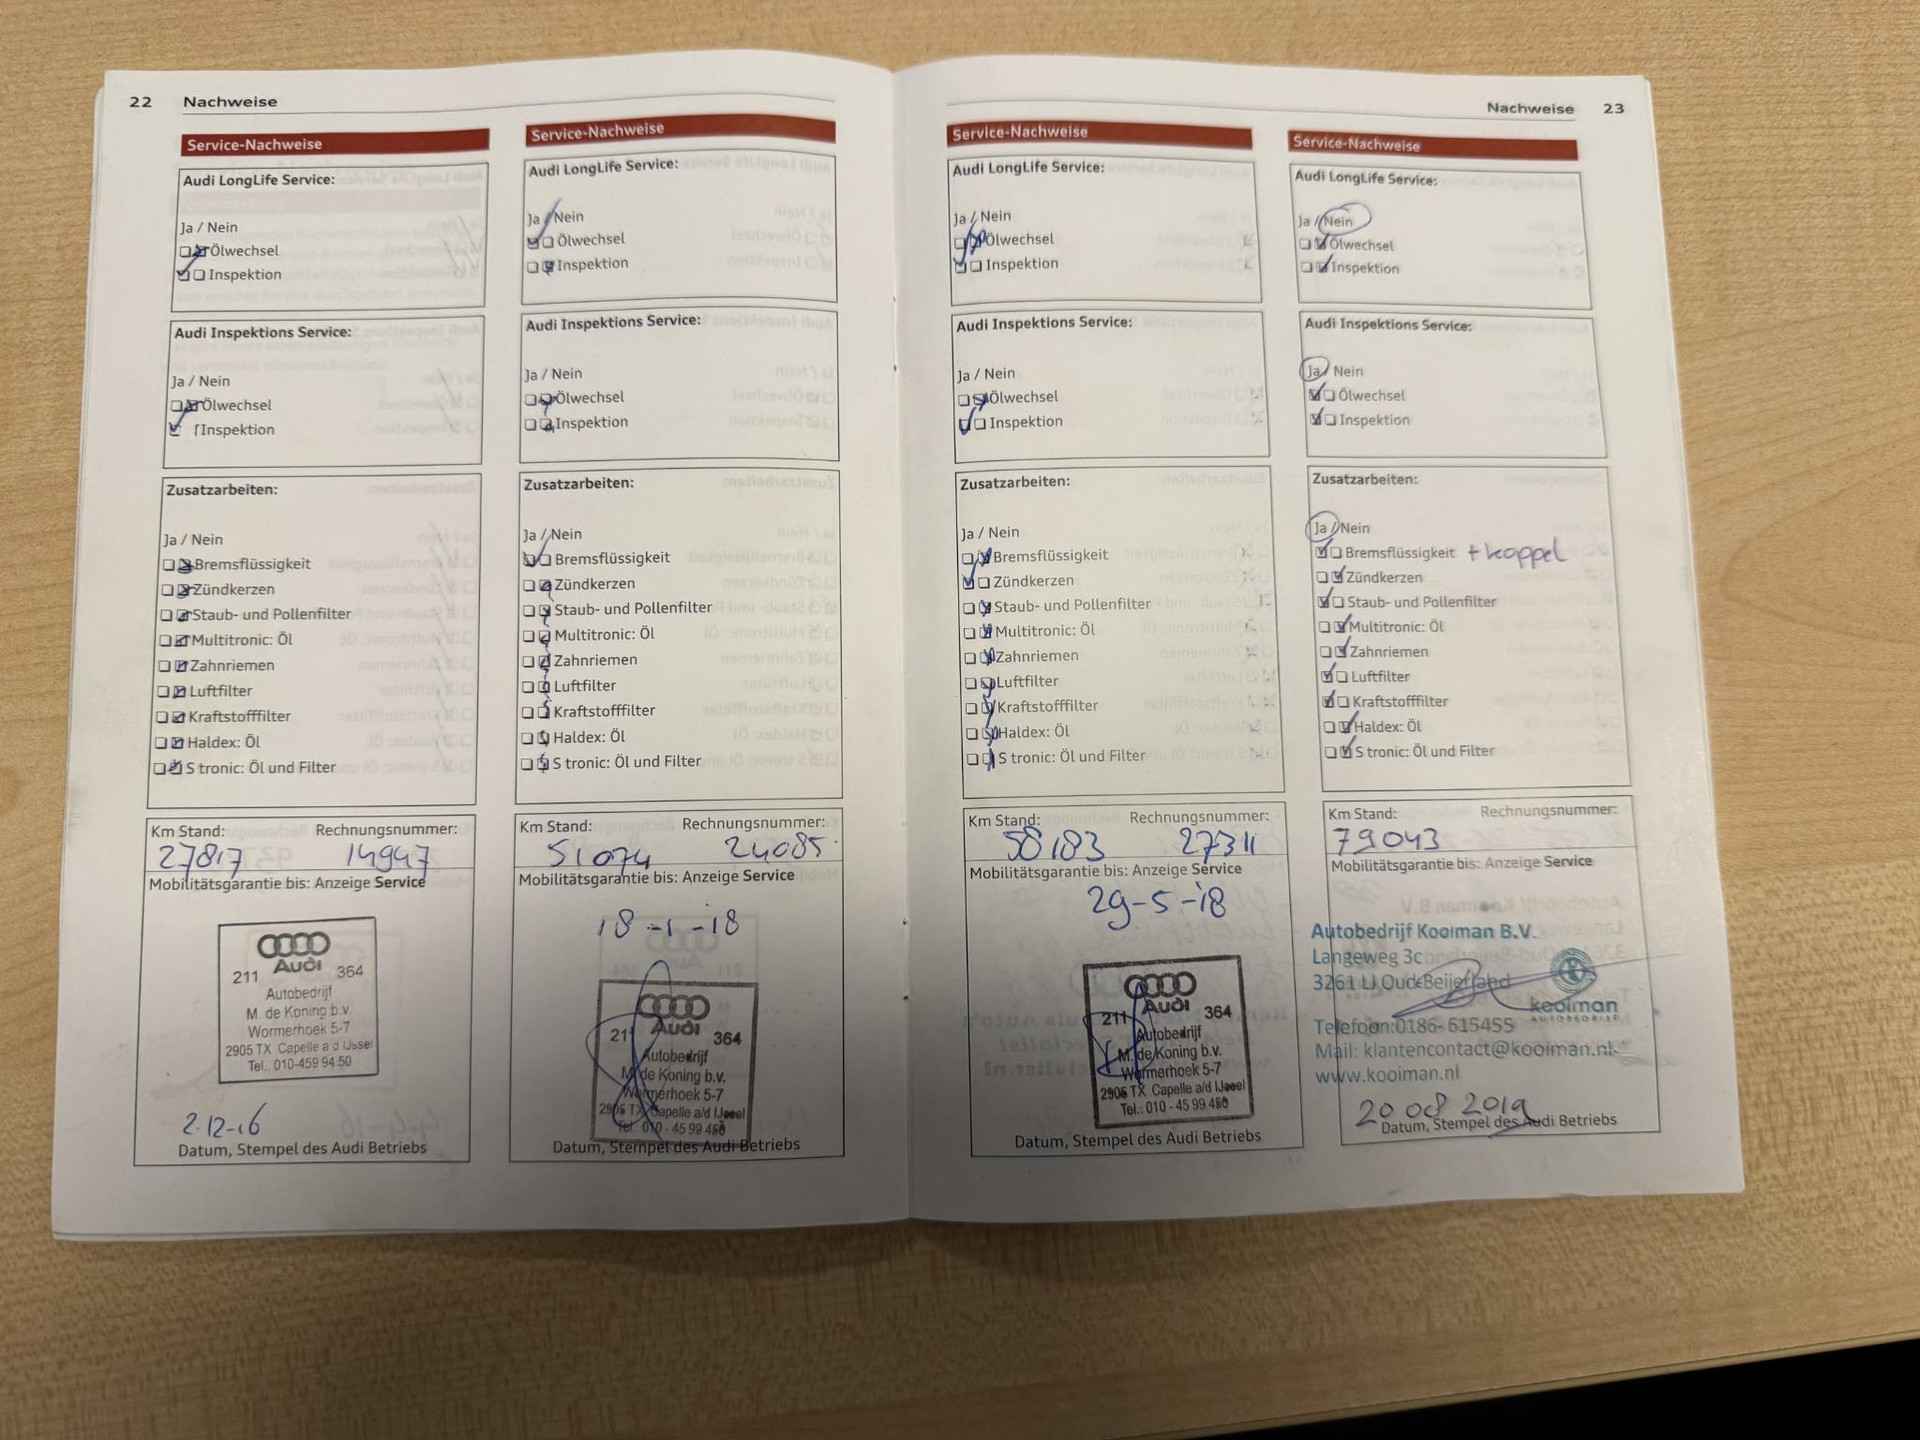 22 Nachweise
Service-Nachweise
Audi LongLife Service:
Ja / Nein
Ölwechsel
Inspektion
Audi Inspektions Service:
Ja / Nein
Ölwechsel
Inspektion
Zusatzarbeiten:
Ja / Nein
Bremsflüssigkeit
Zündkerzen
Staub- und Pollenfilter
Multitronic: Öl
Zahnriemen
Luftfilter
Kraftstofffilter
Haldex: Öl
S tronic: Öl und Filter
Km Stand: Rechnungsnummer:
27817 14947
Mobilitätsgarantie bis: Anzeige Service
Audi
211 364
Autobedrijf
M. de Koning b.v.
Wormerhoek 5-7
2905 TX Capelle a d IJssel
Tel.: 010-459 94 50
2-12-16
Datum, Stempel des Audi Betriebs
Service-Nachweise
Audi LongLife Service:
Ja / Nein
Ölwechsel
Inspektion
Audi Inspektions Service:
Ja / Nein
Ölwechsel
Inspektion
Zusatzarbeiten:
Ja / Nein
Bremsflüssigkeit
Zündkerzen
Staub- und Pollenfilter
Multitronic: Öl
Zahnriemen
Luftfilter
Kraftstofffilter
Haldex: Öl
S tronic: Öl und Filter
Km Stand: Rechnungsnummer:
51074 24085
Mobilitätsgarantie bis: Anzeige Service
18-1-18
Audi
211 364
Autobedrijf
M. de Koning b.v.
Wormerhoek 5-7
2905 TX Capelle a/d IJssel
Tel.: 010 - 45 99 450
Datum, Stempel des Audi Betriebs
Nachweise 23
Service-Nachweise
Audi LongLife Service:
Ja / Nein
Ölwechsel
Inspektion
Audi Inspektions Service:
Ja / Nein
Ölwechsel
Inspektion
Zusatzarbeiten:
Ja / Nein
Bremsflüssigkeit
Zündkerzen
Staub- und Pollenfilter
Multitronic: Öl
Zahnriemen
Luftfilter
Kraftstofffilter
Haldex: Öl
S tronic: Öl und Filter
Km Stand: Rechnungsnummer:
58183 27311
Mobilitätsgarantie bis: Anzeige Service
29-5-18
Audi
211 364
Autobedrijf
M. de Koning b.v.
Wormerhoek 5-7
2905 TX Capelle a/d IJssel
Tel.: 010 - 45 99 450
Datum, Stempel des Audi Betriebs
Service-Nachweise
Audi LongLife Service:
Ja / Nein
Ölwechsel
Inspektion
Audi Inspektions Service:
Ja / Nein
Ölwechsel
Inspektion
Zusatzarbeiten:
Ja / Nein
Bremsflüssigkeit + koppel
Zündkerzen
Staub- und Pollenfilter
Multitronic: Öl
Zahnriemen
Luftfilter
Kraftstofffilter
Haldex: Öl
S tronic: Öl und Filter
Km Stand: Rechnungsnummer:
79043
Mobilitätsgarantie bis: Anzeige Service
Autobedrijf Kooiman B.V.
Langeweg 3c
3261 LJ Oud-Beijerland
kooiman
AUTOBEDRIJF
Telefoon:0186-615455
Mail: klantencontact@kooiman.nl
www.kooiman.nl
20 08 2019
Datum, Stempel des Audi Betriebs